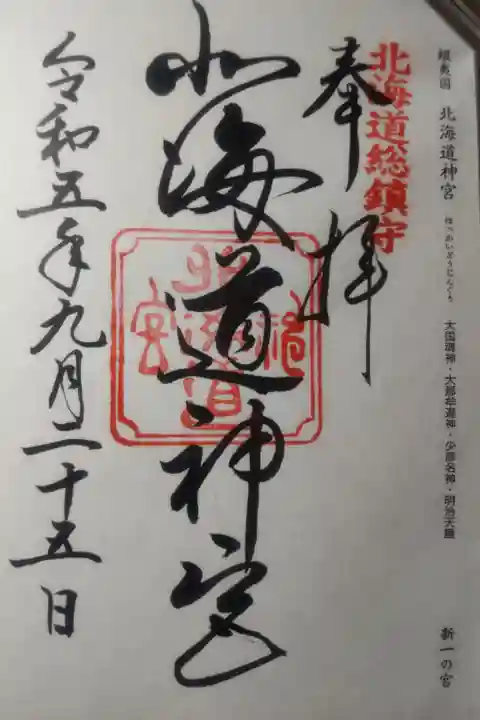 蝦夷国 北海道神宮 ほっかいどうじんぐう 大国魂神・大那牟遅神・少彦名神・明治天皇 新一の宮
北海道総鎮守
奉拝
北海道神宮
令和五年九月二十五日